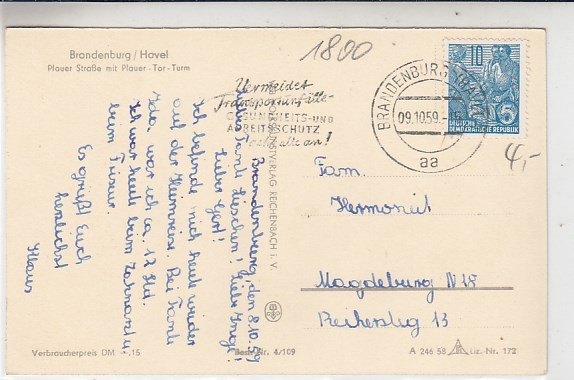 Brandenburg / Havel
Plauer Straße mit Plauer-Tor-Turm
1800
Vermeidet
Transportunfälle
GESUNDHEITS-UND
ARBEITSSCHUTZ
geht alle an!
BRANDENBURG (HAVEL)
09.10.59.-
aa
10
5
DEUTSCHE
DEMOKRATISCHE REPUBLIK
4,-
Brandenburg, den 8.10.59
Liebe Tante Lieschen! Liebe Inge!
Lieber Gert!
Ich befinde mich heute wieder
auf der Heimreise. Bei Tante
war ich ca. 12 Std.
Ich war heute beim Zahnarzt u.
beim Friseur.
Es grüßt Euch
herzlichst
Klaus
Fam.
Hermoneit
Magdeburg N 18
13
VERLAG REICHENBACH I. V.
Verbraucherpreis DM -,15
Best.-Nr. 4/109
A 246 58
Liz.-Nr. 172